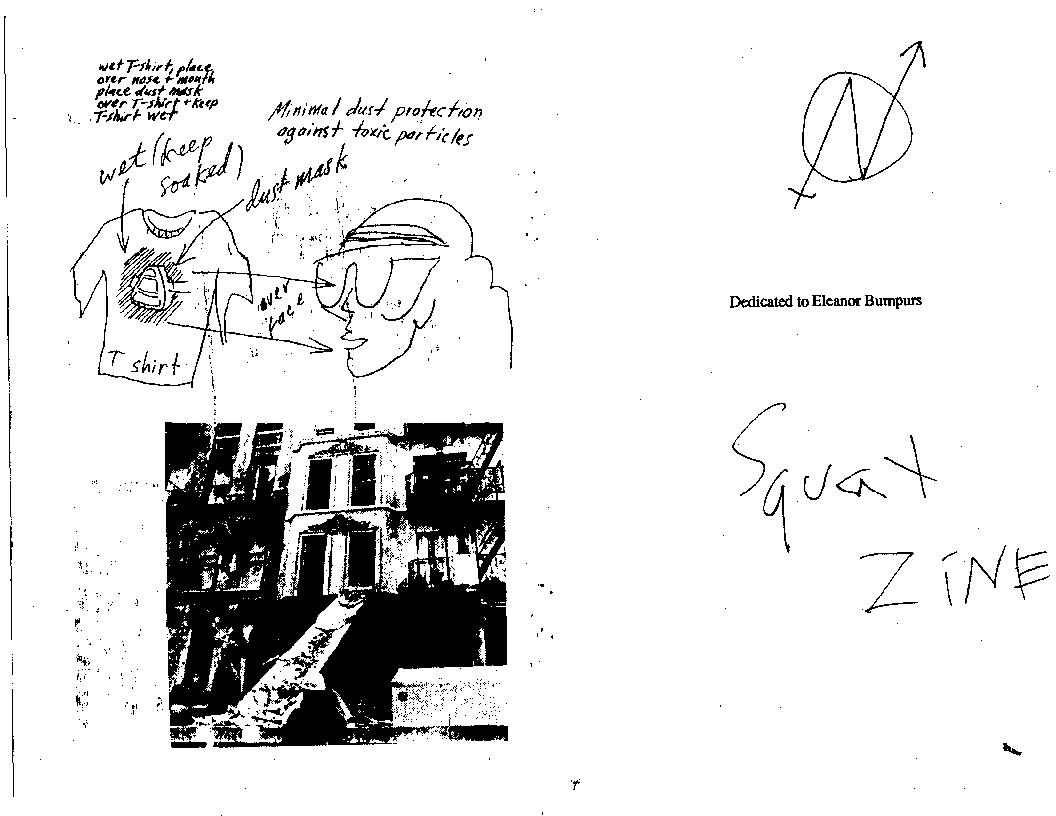 wet T-shirt, place
over nose + mouth
place dust mask
over T-shirt + keep
T-shirt wet
Minimal dust protection
against toxic particles
wet (keep
soaked)
dust mask
over
face
T shirt
Dedicated to Eleanor Bumpurs
Squat
ZiNE